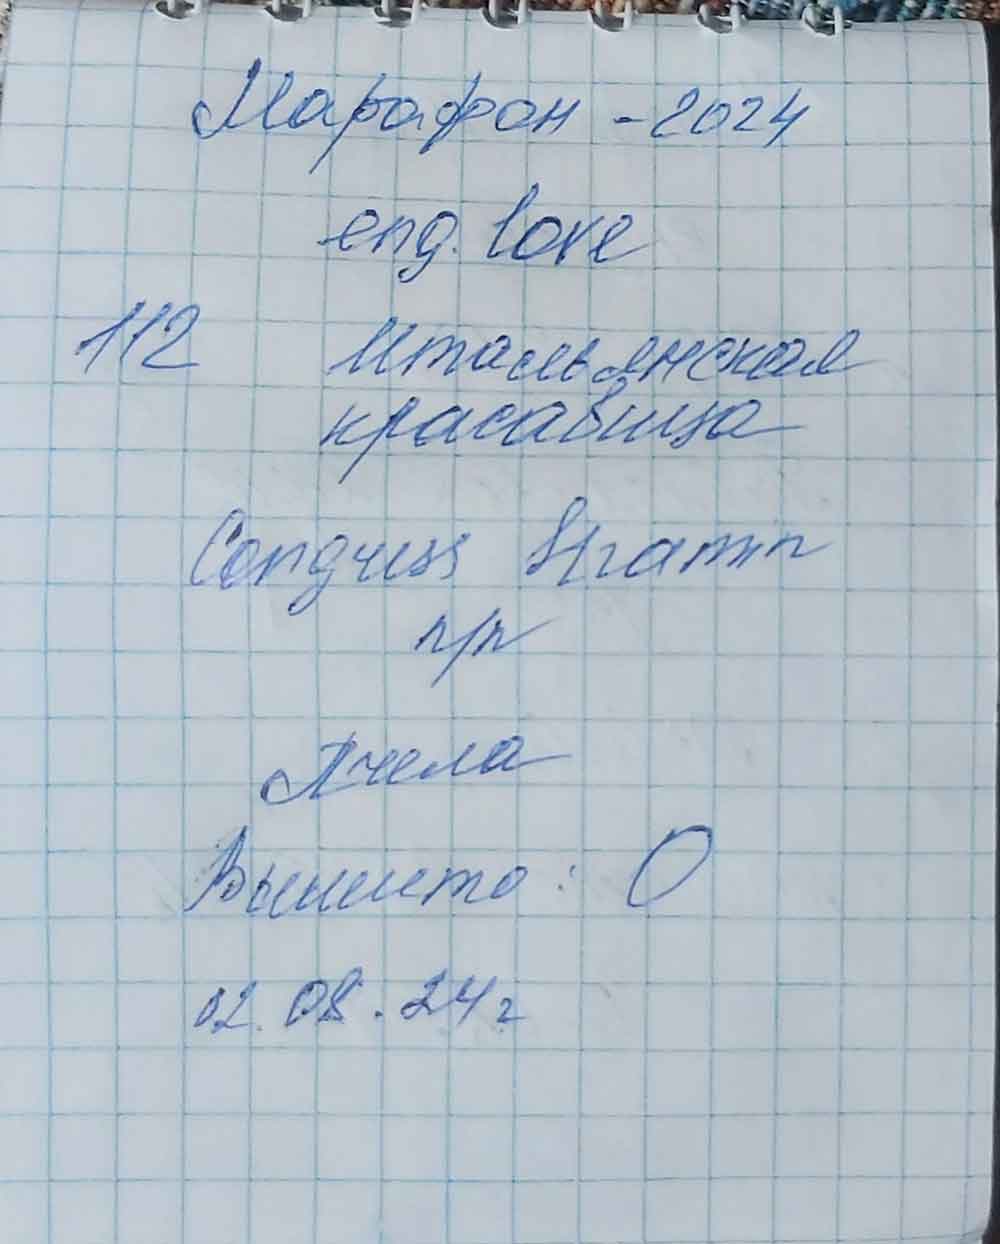 Марафон - 2024
eng. love
112 Итальянская
красавица
п/п
Пчела
Вышито: 0
02.08.24г